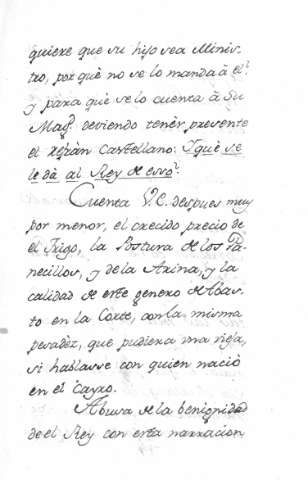 quiere que su hijo sea Minis-
tro, por què no se lo manda à èl?
y para què se lo cuenta à Su
Mag.d deviendo tenèr presente
el refràn Castellano: Y què se
le dà al Rey de esso?
Cuenta V.E. despues muy
por menor, el crecido precio de
el Trigo, la Postura de los Pa-
necillos, y de la Arina, y la
calidad de este genero de Abas-
to en la Corte, con la misma
pesadèz, que pudiera una vieja,
si hablasse con quien naciò
en el Cayro.
Abusa de la benignidad
de el Rey con esta narracion,